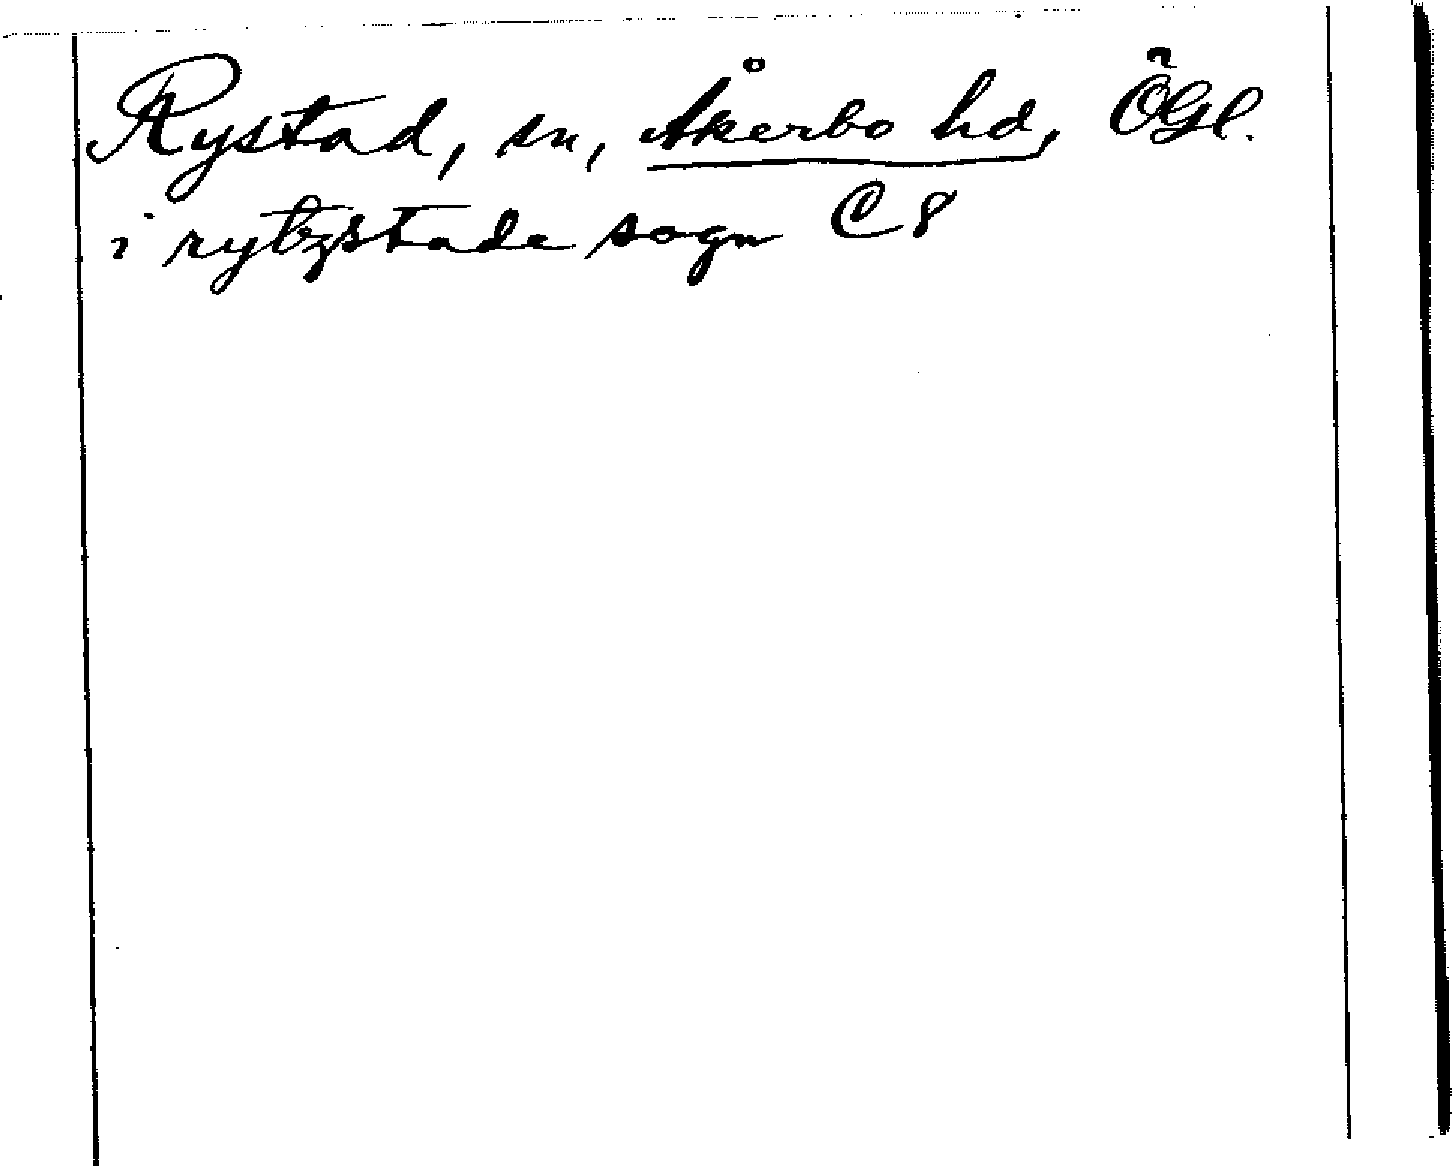 Rystad, sn, Åkerbo hd, ÖGl.
i rytzstada sogn C 8